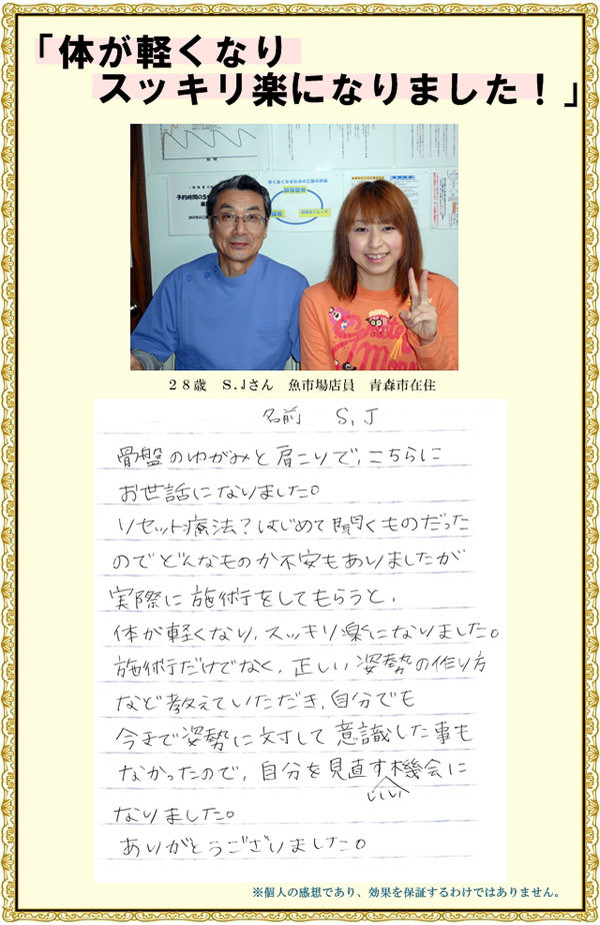 「体が軽くなり
スッキリ楽になりました！」
２８歳　Ｓ.Ｊさん　魚市場店員　青森市在住
名前　S,J
骨盤のゆがみと肩こりで、こちらに
お世話になりました。
リセット療法？はじめて聞くものだった
のでどんなものか不安もありましたが
実際に施術をしてもらうと、
体が軽くなり、スッキリ楽になりました。
施術だけでなく、正しい姿勢の作り方
など教えていただき、自分でも
今まで姿勢に対して意識した事も
なかったので、自分を見直すいい機会に
なりました。
ありがとうございました。
※個人の感想であり、効果を保証するわけではありません。